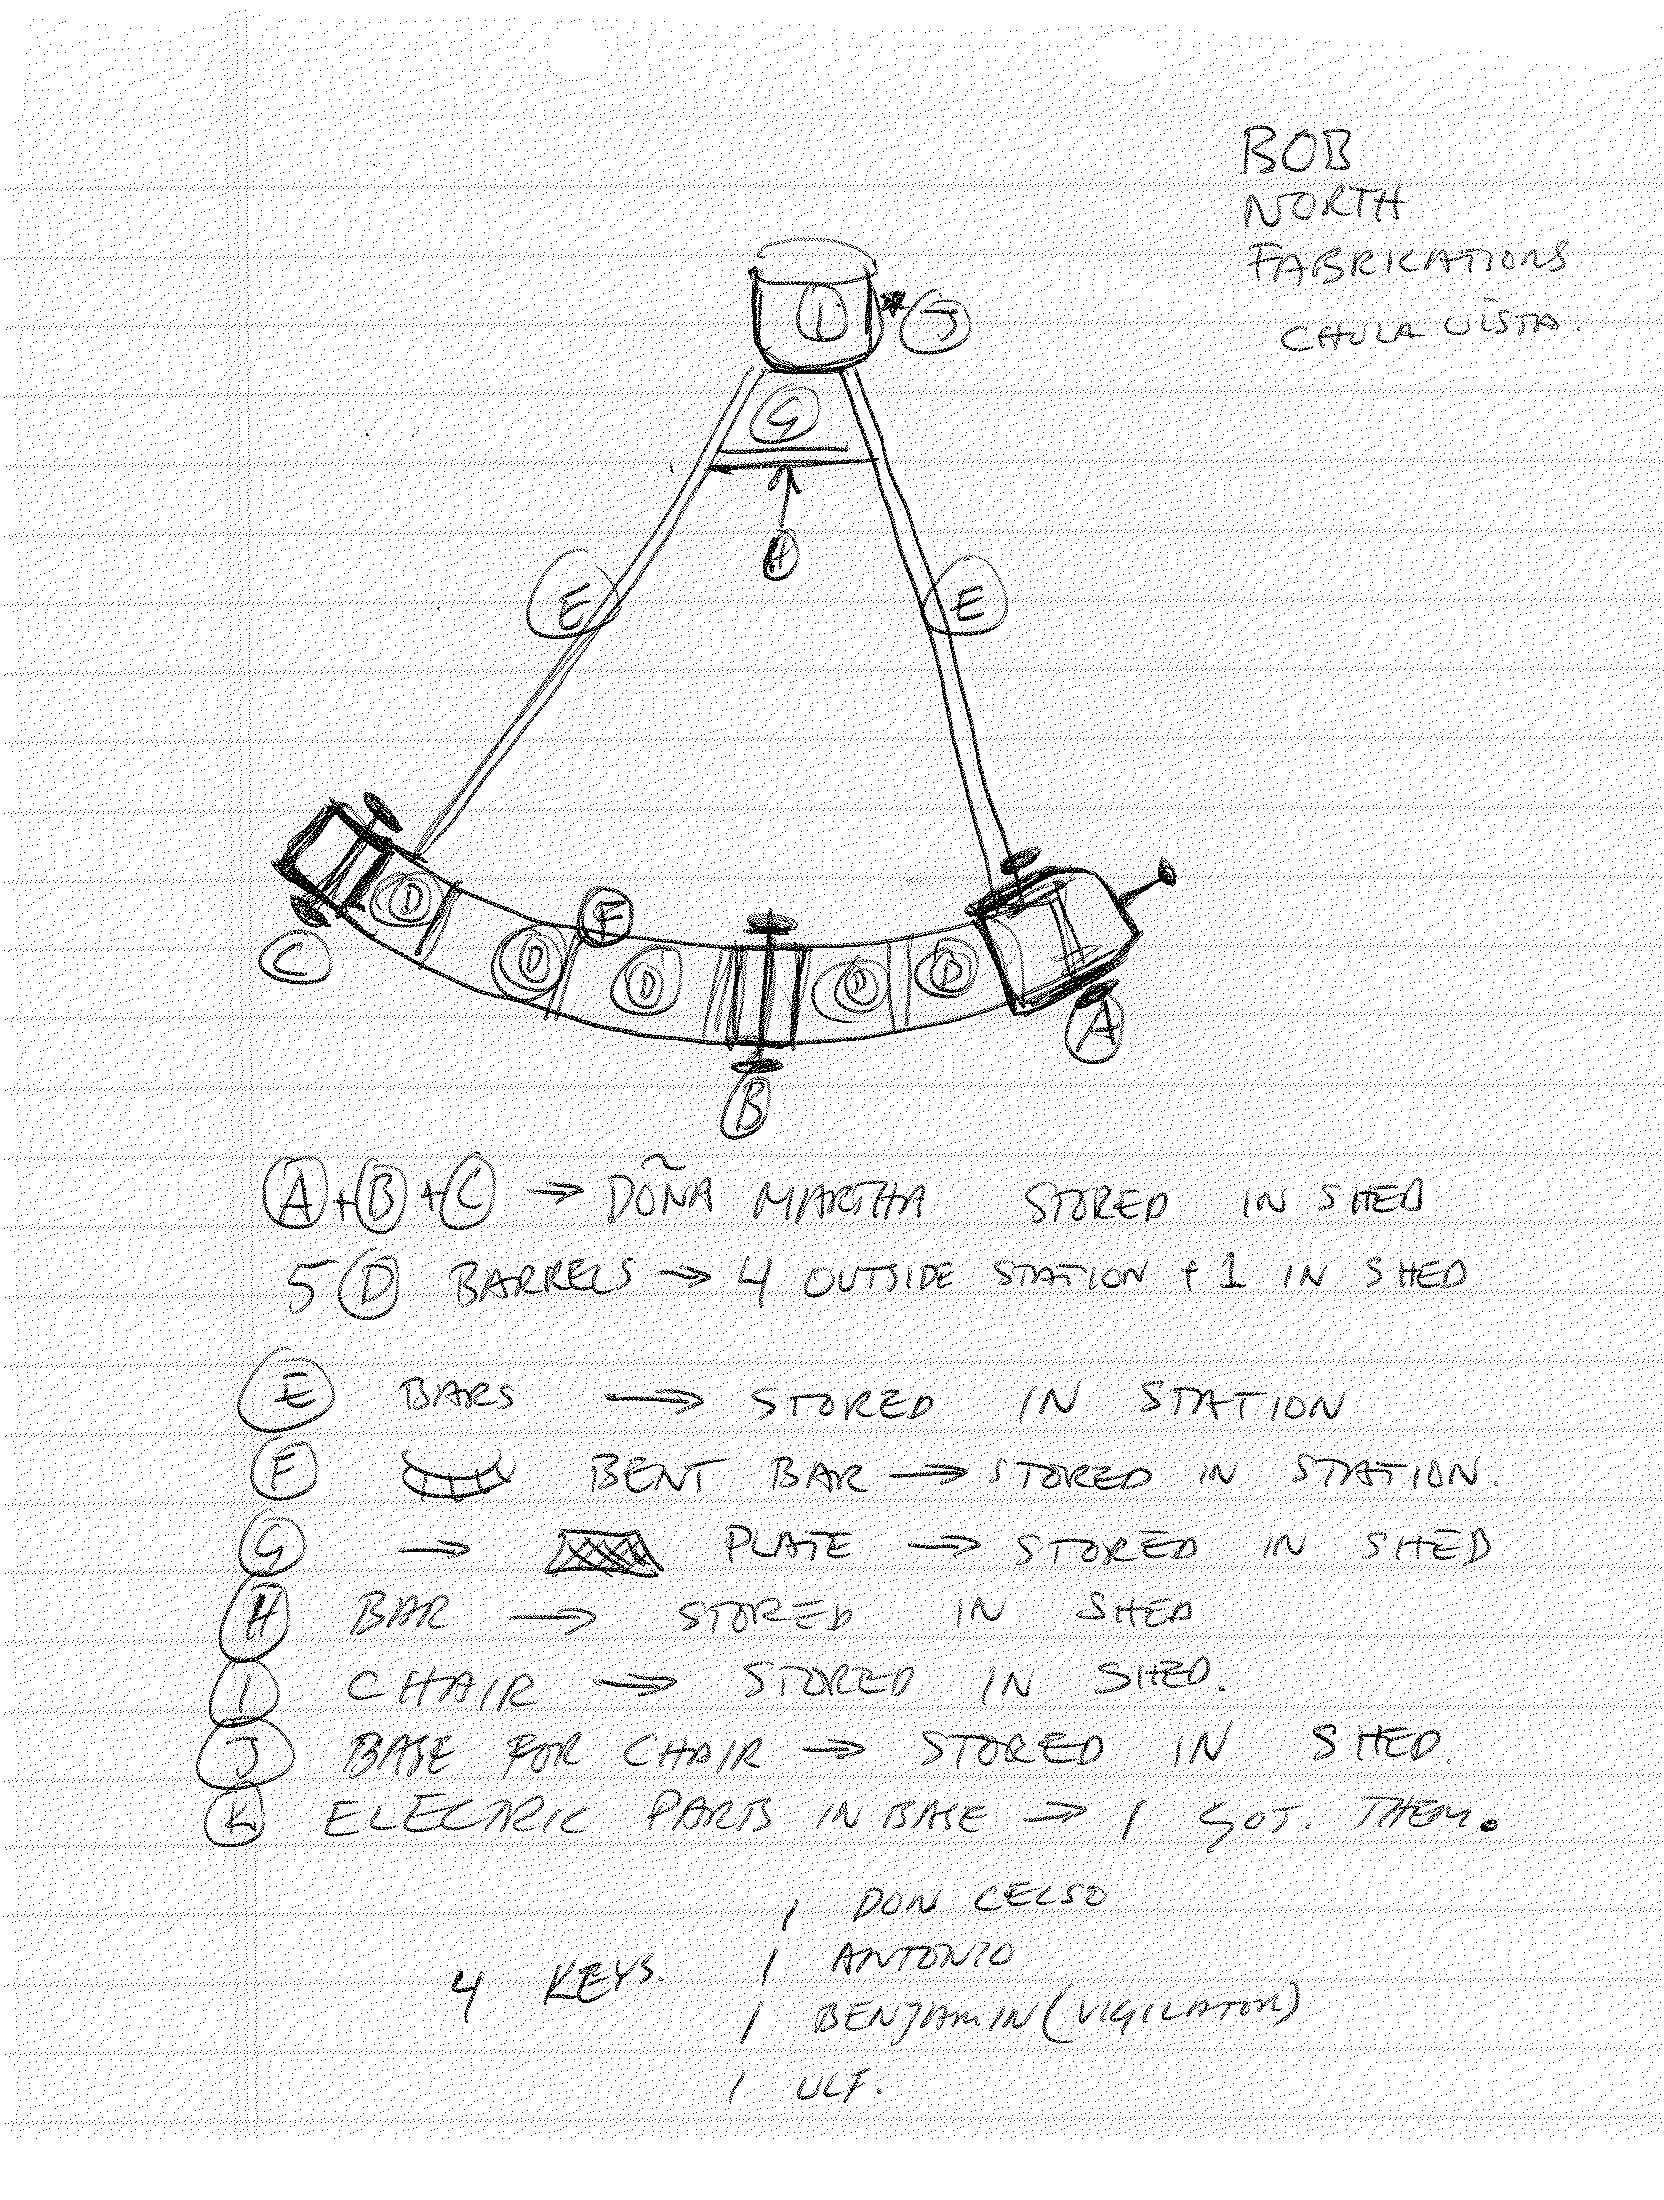 BOB
NORTH
FABRICATIONS
CHULA VISTA.
I
J
G
H
E E
D F D D D D
C
A
B
A + B + C → DOÑA MARTHA STORED IN SHED
5 D BARRELS → 4 OUTSIDE STATION + 1 IN SHED
E BARS → STORED IN STATION
F BENT BAR → STORED IN STATION.
G → PLATE → STORED IN SHED
H BAR → STORED IN SHED
I CHAIR → STORED IN SHED.
J BASE FOR CHAIR → STORED IN SHED.
K ELECTRIC PARTS IN BASE → I GOT. THEM.
1 DON CELSO
4 KEYS. 1 ANTONIO
1 BENJAMIN (VIGILATOR)
1 ULF.